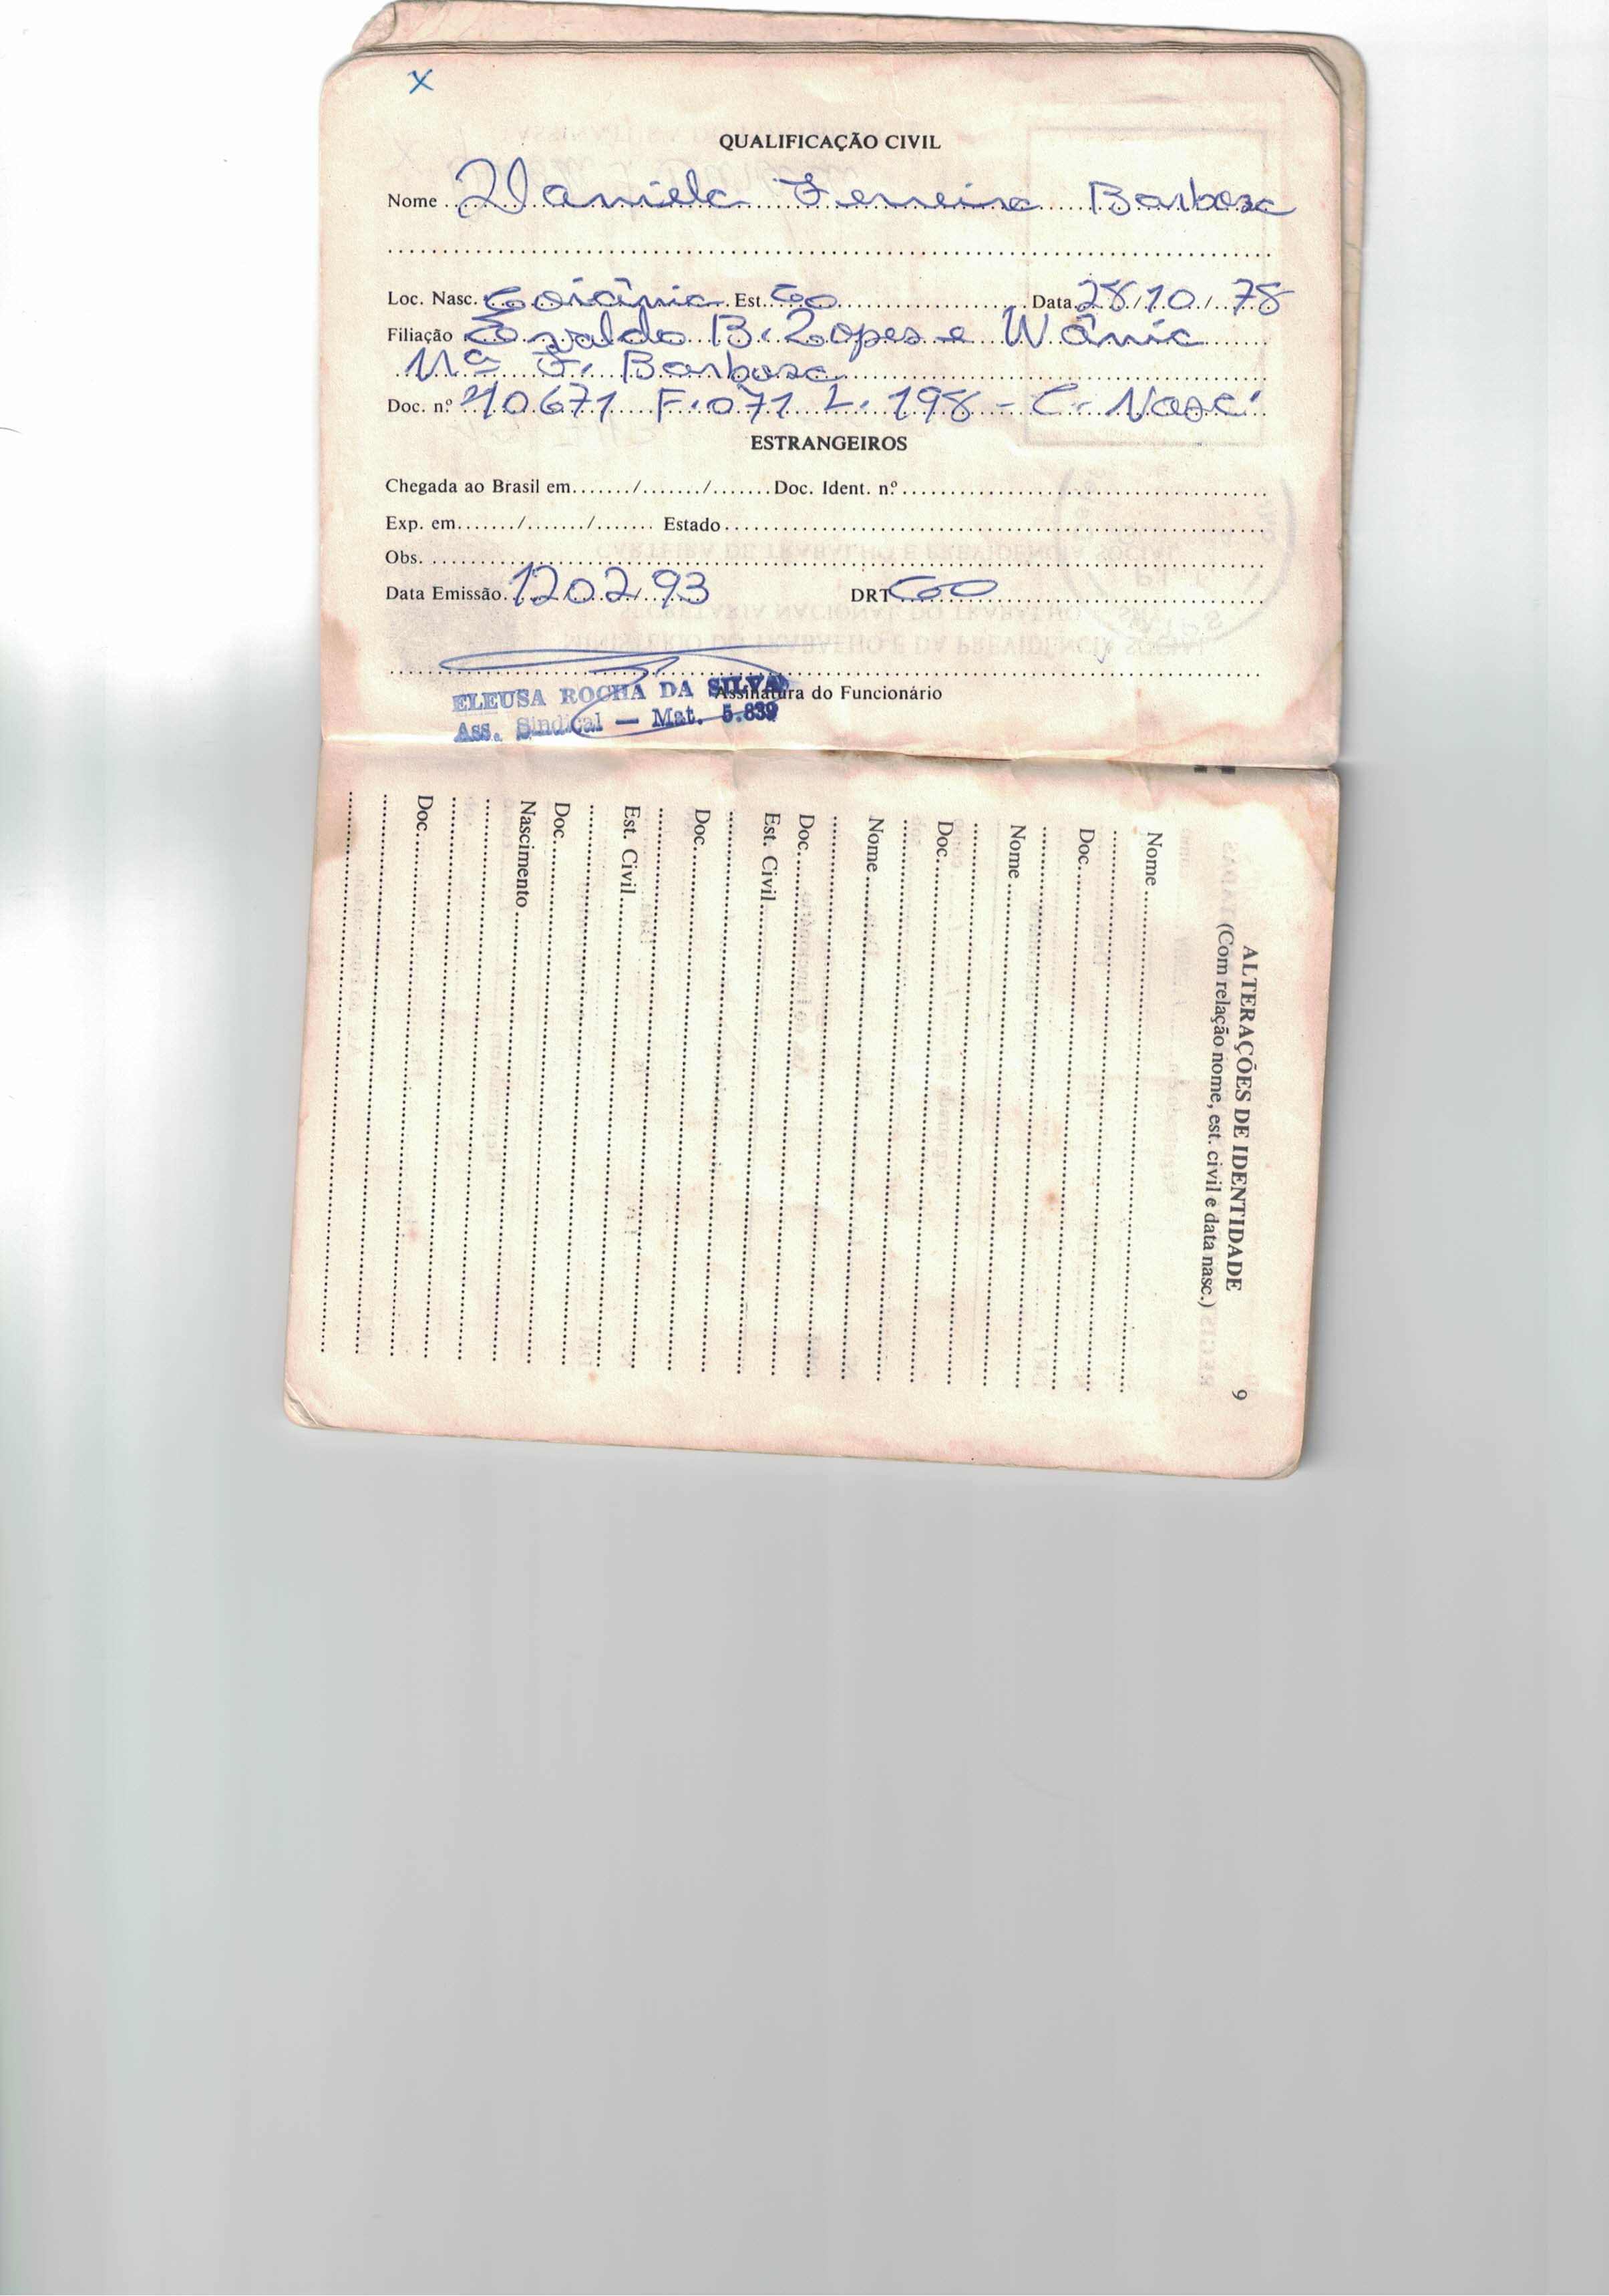 X
QUALIFICAÇÃO CIVIL
Nome Daniela Ferreira Barbosa
Loc. Nasc. Goiânia Est. Go Data 28/10/78
Filiação Osvaldo B. Lopes e Wânia
Mª F. Barbosa
Doc. n.º 70671 F. 071 L. 198 - C. Nasc.
ESTRANGEIROS
Chegada ao Brasil em......./......./.......Doc. Ident. n.º
Exp. em......./......./....... Estado
Obs.
Data Emissão 120293 DRT GO
ELEUSA ROCHA DA SILVA
Assinatura do Funcionário
Ass. Sindical — Mat. 5.839
ALTERAÇÕES DE IDENTIDADE 9
(Com relação nome, est. civil e data nasc.)
Nome
Doc.
Nome
Doc.
Nome
Doc.
Est. Civil
Doc.
Est. Civil
Doc.
Nascimento
Doc.